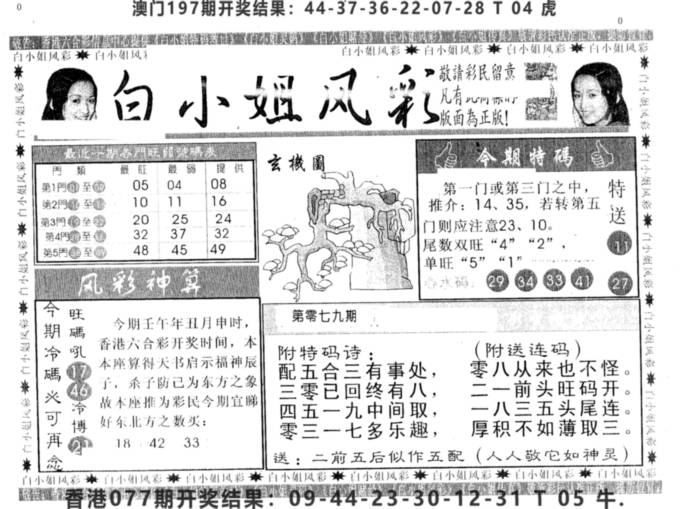 澳门197期开奖结果：44-37-36-22-07-28 T 04 虎
0
0
白小姐风彩
白小姐风彩
白小姐风彩
敬請彩民留意
凡有
版面為正版!
最近十期各門旺弱號碼表
門 類 最旺 最弱 提供
第1門 至 05 04 08
第2門 至 10 11 16
第3門 至 20 25 24
第4門 至 32 37 32
第5門 至 48 45 49
玄機圖
今期特碼
第一门或第三门之中，
推介：14、35，若转第五
门则应注意23、10。
尾数双旺“4”“2”，
单旺“5”“1”
29 34 33 41
特送
11
27
风彩神算
今期冷碼必可再念
旺碼吼
17
46
冷博
21
今期壬午年丑月申时，
香港六合彩开奖时间，本
本座算得天书启示福神辰
子，杀子防己为东方之象
故本座推为彩民今期宜睇
好东北方之数买：
18 42 33
第零七九期
附特码诗： （附送连码）
配五合三有事处， 零八从来也不怪。
三零已回终有八， 二一前头旺码开。
四五一九中间取， 一八三五头尾连。
零三一七多乐趣， 厚积不如薄取三。
送：二前五后似作五配（人人敬它如神灵）
香港077期开奖结果：09-44-23-30-12-31 T 05 牛.